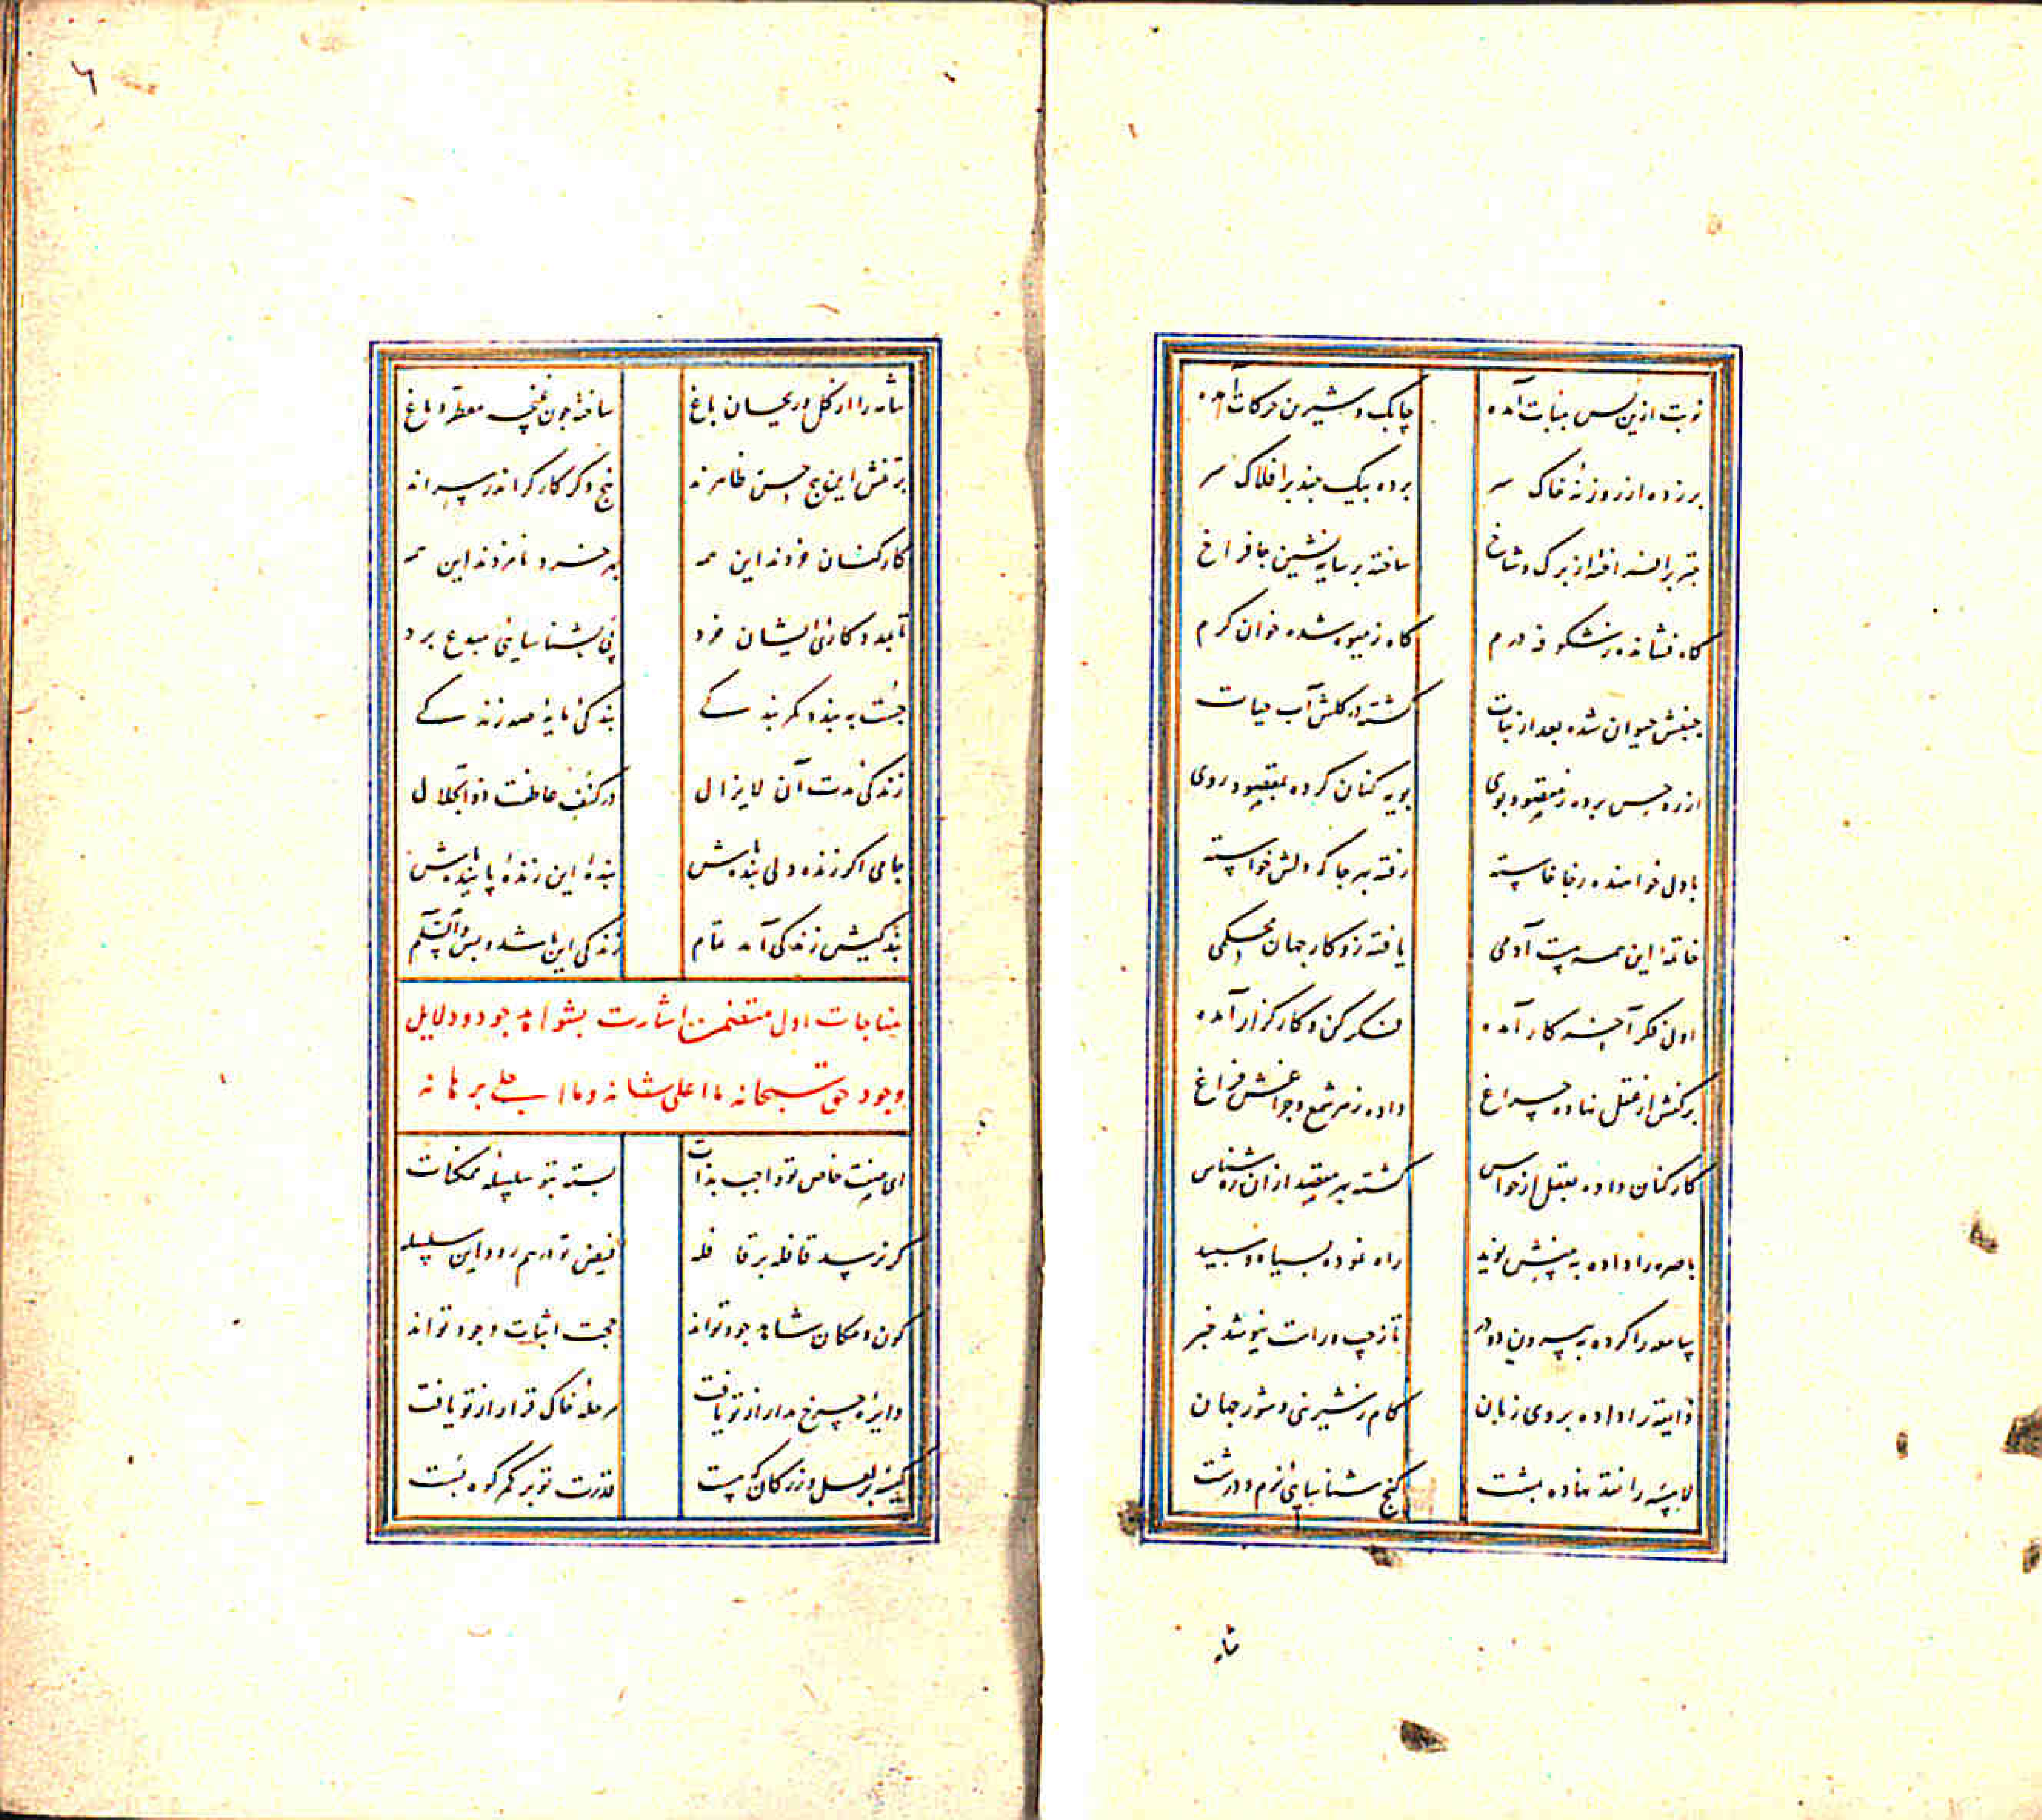 نوبت ازین پس به نبات آمده چابک و شیرین حرکات آمده
بر زده از روزنهٔ خاک سر برده بیک چند بر افلاک سر
چتر برافراخته از برگ و شاخ ساخته بر سایه نشین جا فراخ
گاه فشانده ز شکوفه درم گاه ز میوه شده خوان کرم
جنبش حیوان شده بعد از نبات گشته در گلشن آب حیات
از ره حس برده ز مقصود بوی پویه کنان کرده بمقصود روی
با دل خواهنده ز جا خاسته رفته بهر جا که دلش خواسته
خاتمهٔ این همه هست آدمی یافته زو کار جهان محکمی
اول فکر آخر کار آمده فکر کن و کارگزار آمده
بر کفش از عقل نهاده چراغ داده ز هر شمع و چراغش فراغ
کارکنان داده بعقل از حواس گشته بهر مقصد ازان ره شناس
باصره را داده به بینش نوید راه نموده بسیاه و سپید
سامعه را کرده به بیرون دو در تا ز چپ و راست نیوشد خبر
ذایقه را داده بروی زبان کام ز شیرینی و شور جهان
لامسه را نقد نهاده بمشت گنج شناسایی نرم و درشت
شا
٦
شامه را از گل و ریحان باغ ساخته چون غنچه معطر دماغ
بر تنش این پنج حس ظاهرند پنج دگر کارگر اندر سرند
کارکنان خردند این همه بهر خرد نامزدند این همه
تا بمددکاری ایشان خرد پی بشناسایی مبدع برد
چست به بندد کمر بندگی بندگی مایهٔ صد زندگی
زندگی خدمت آن لایزال در کنف عاطفت ذو الجلال
جامی اگر زنده دلی بنده باش بندهٔ این زندهٔ پاینده باش
بندگیش زندگی آمد تمام زندگی این باشد و بس والسلام
مناجات اول متضمن اشارت بشواهد جود و دلایل
وجود حق سبحانه ما اعلی شانه و ما اجلی برهانه
ای صفت خاص تو واجب بذات بسته بتو سلسلهٔ ممکنات
گر نرسد قافله بر قافله فیض تو در هم رود این سلسله
کون و مکان شاهد جود تواند حجت اثبات وجود تواند
دایرهٔ چرخ مدار از تو یافت مرحلهٔ خاک قرار از تو یافت
کیسه پر لعل و زر کان که هست قدرت تو بر کمر کوه بست